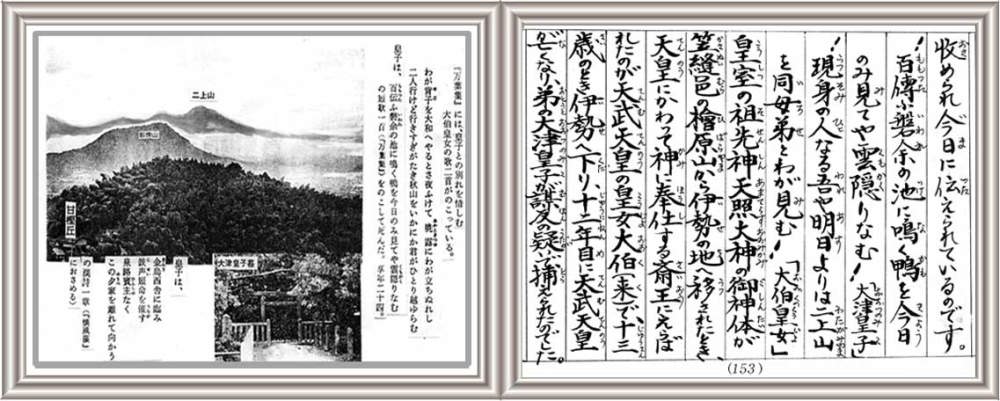 収められ今日に伝えられているのです。
！百傳ふ磐余の池に鳴く鴨を今日
のみ見てや雲隠りなむ！「大津皇子」
！現身の人なる吾や明日よりは二上山
を同母弟とわが見む！「大伯皇女」
皇室の祖先神天照大神の御神体が
笠縫邑の檜原山から伊勢の地へ移されたとき、
天皇にかわって神に奉仕する斎王にえらば
れたのが大武天皇の皇女大伯(来)で十三
歳のとき伊勢へ下り、十二年目に天武天皇
が亡くなり、弟の大津皇子が謀反の疑いで捕えられたのでした。
(153)
『万葉集』には、皇子との別れを惜しむ
大伯皇女の歌二首がのこっている。
わが背子を大和へやるとさ夜ふけて、暁露にわが立ちぬれし
二人行けど行きすぎがたき秋山をいかにか君がひとり越ゆらむ
皇子は、
百伝ふ磐余の池に鳴く鴨を今日のみ見てや雲隠りなむ
の短歌一首（『万葉集』）をのこして死んだ。享年二十四。
二上山
甘樫丘
大津皇子墓
皇子は、
金烏西舎に臨み
鼓声短命を催す
泉路賓主なく
この夕家を離れて向かう
の漢詩一章（『懐風藻』
におさめる）